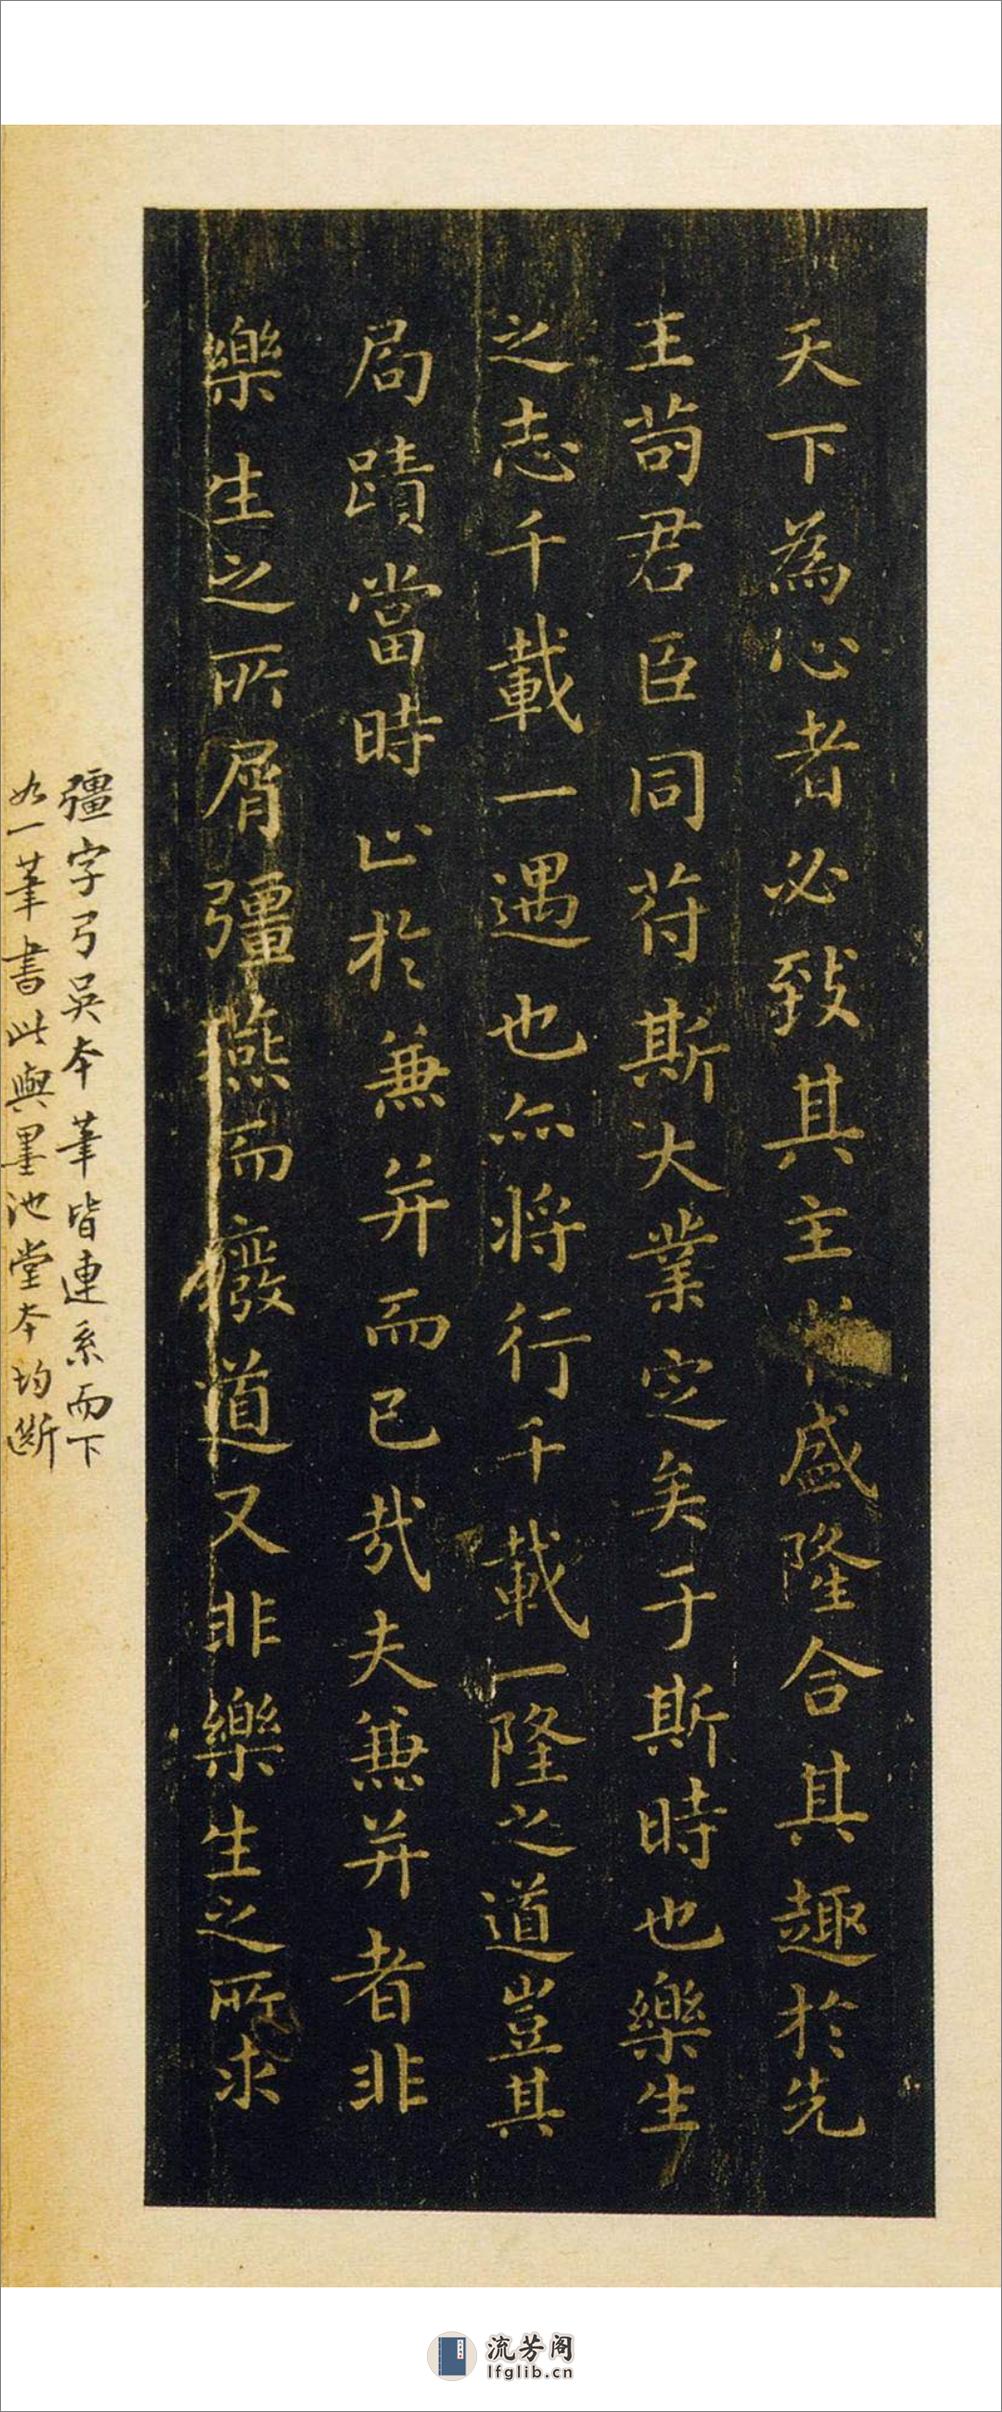 天下為心者必致其主盛隆合其趣於先
王苟君臣同苻斯大業定矣于斯時也樂生
之志千載一遇也亦將行千載一隆之道豈其
局蹟當時止於兼并而已哉夫兼并者非
樂生之所屑彊燕而廢道又非樂生之所求
彊字弓吳本筆皆連系而下
如一筆書此與墨池堂本均斷
流芳阁
lfglib.cn